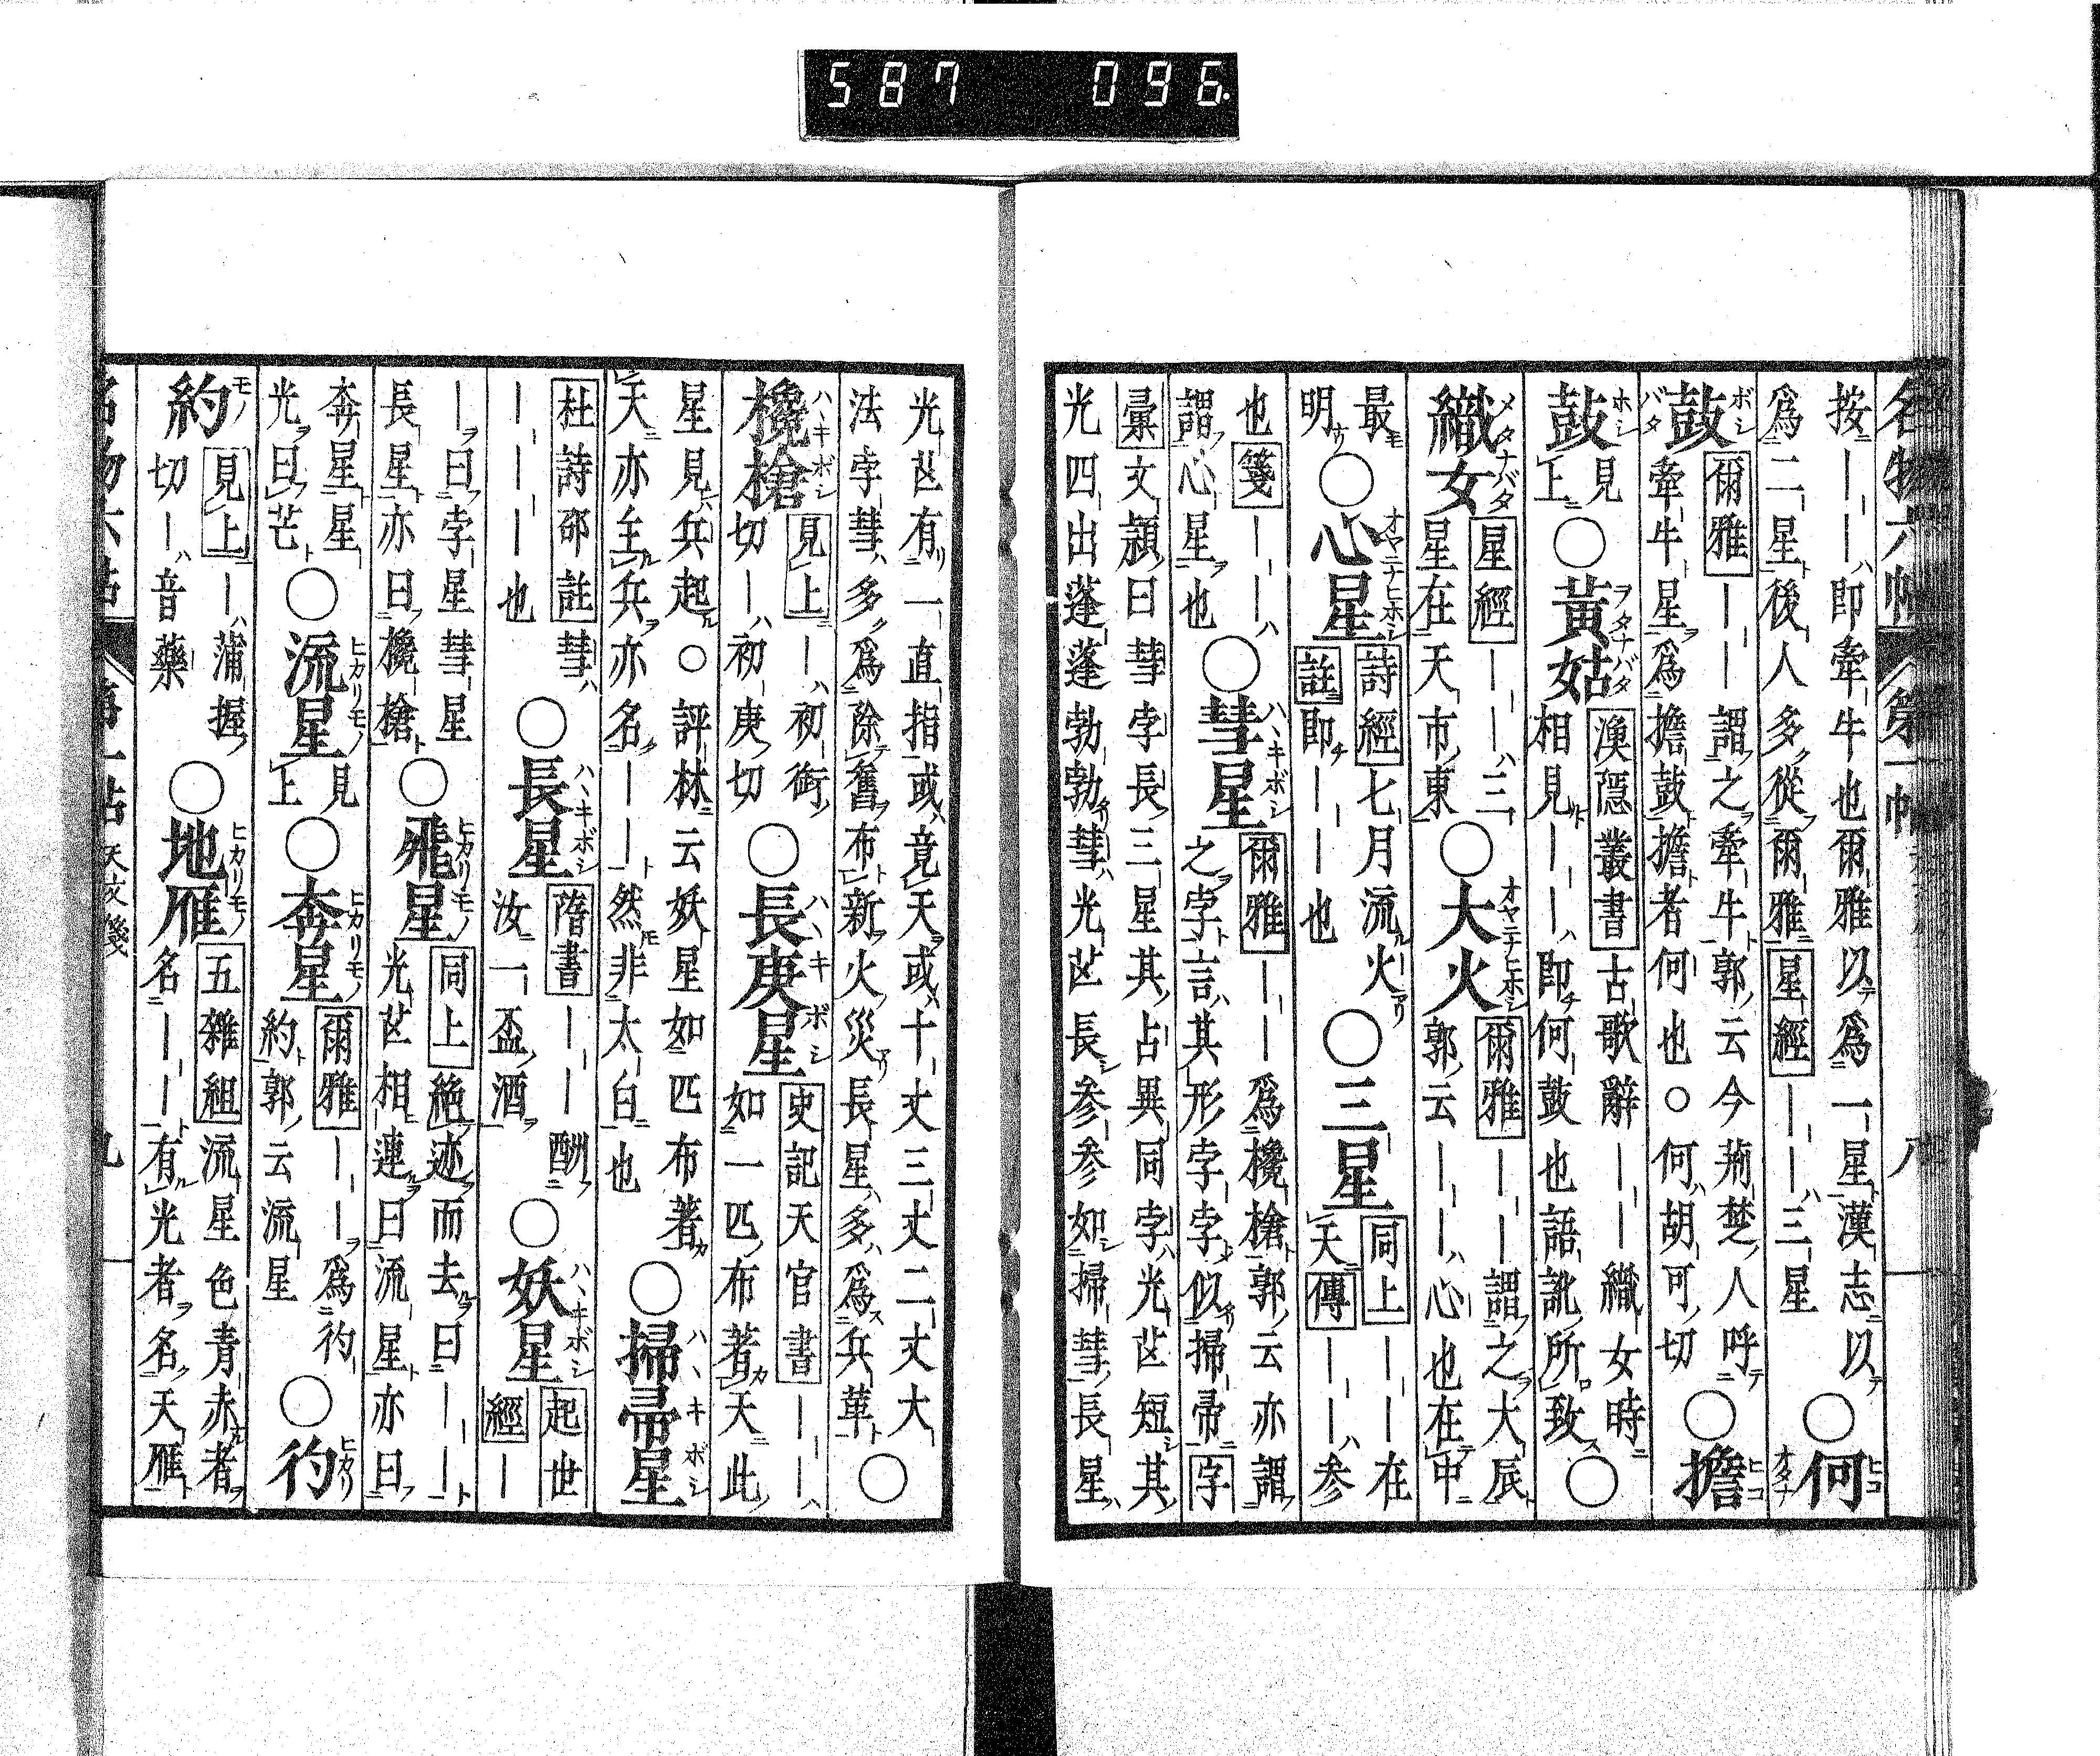 587 096.
名物六帖 第一帖 八
按――即牽牛也爾雅以爲一星漢志以
爲二星後人多從爾雅星經――三星
○何
鼓 爾雅――謂之牽牛郭云今荊楚人呼
牽牛星爲擔鼓擔者何也○何胡可切
○擔
鼓 見上
○黃姑 漁隱叢書古歌辭――織女時
相見――即何鼓也語訛所致
○
織女 星經――三
星在天市東
○大火 爾雅――謂之大辰
郭云――心也在中
最
明
○心星 詩經七月流火
註即――也
○三星 同上――在
天傳――參
也箋――
謂心星也
○彗星 爾雅――爲欃槍郭云亦謂
之孛言其形孛孛似掃帚字
彙文頴曰彗孛長三星其占異同孛光芒短其
光四出蓬蓬勃勃彗光芒長參參如掃彗長星
光芒有一直指或竟天或十丈三丈二丈大
法孛彗多爲除舊布新火災長星多爲兵革
○
欃槍 見上―初銜
切―初庚切
○長庚星 史記天官書――
如一匹布著天此
星見兵起○評林云妖星如匹布著
天亦主兵亦名――然非太白也
○掃帚星
杜詩邵註彗
―――也
○長星 隋書――酬
汝一盃酒
○妖星 起世
經―
―曰孛星彗星
長星亦曰欃槍
○飛星 同上絶迹而去曰――
光芒相連曰流星亦曰
奔星星
光曰芒
○流星 見上
○奔星 爾雅――爲彴
約郭云流星
○彴
約 見上―蒲握
切―音藥
○地雁 五雜組流星色青赤者
名――有光者名天雁
名物六帖 第一帖 天文箋 九